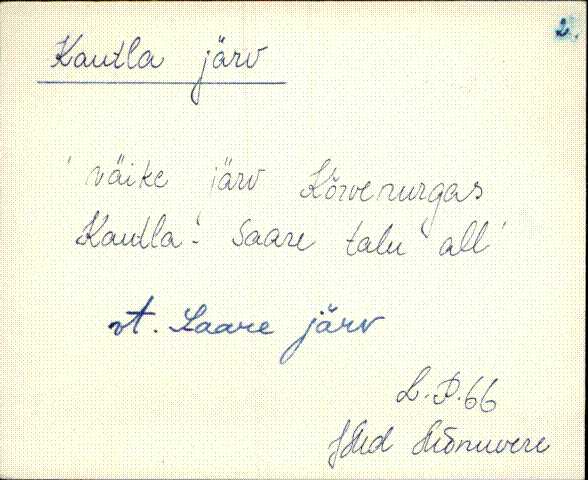 2.
Kautla järv
' väike järv Kõrvenurgas
Kautla - Saare talu all '
vt. Saare järv
L.P.66
Mõnuvere